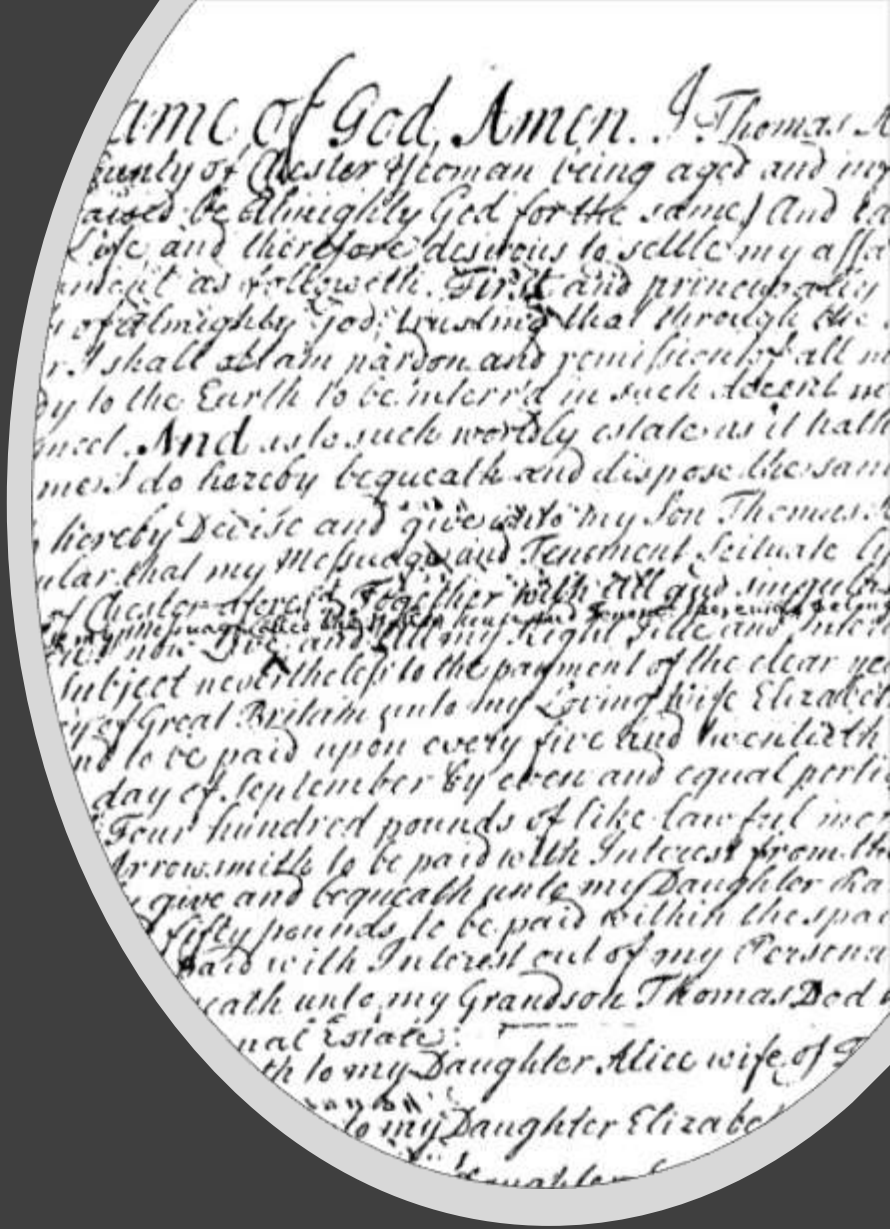 ame of God, Amen. I Thomas
ounty of Chester Yeoman being aged and
aised be Almighty God for the same) And
Life and therefore desirous to settle my affa
ment as followeth. First and principally
of Almighty God, trusting that through the
I shall obtain pardon and remission of all
dy to the Earth to be interr'd in such decent
meet. And as to such worldly estate as it hath
me I do hereby bequeath and dispose the sam
hereby Devise and give unto my Son Thomas
ular that my Messuage and Tenement Scituate
of Chester aforesd Together with All and singular
my Messuage called the
now and All my Right Title and Inte
Subject nevertheless to the payment of the clear
of Great Britain unto my Loving Wife Elizabeth
nd to be paid upon every five and twentieth
day of September by even and equal porti
Four hundred pounds of like lawful mon
Arrowsmith to be paid with Interest from the
give and bequeath unto my Daughter
fifty pounds to be paid within the spa
paid with Interest out of my Persona
eath unto my Grandson Thomas Dod
nal Estate:
th to my Daughter Alice wife of
to my Daughter Elizabe